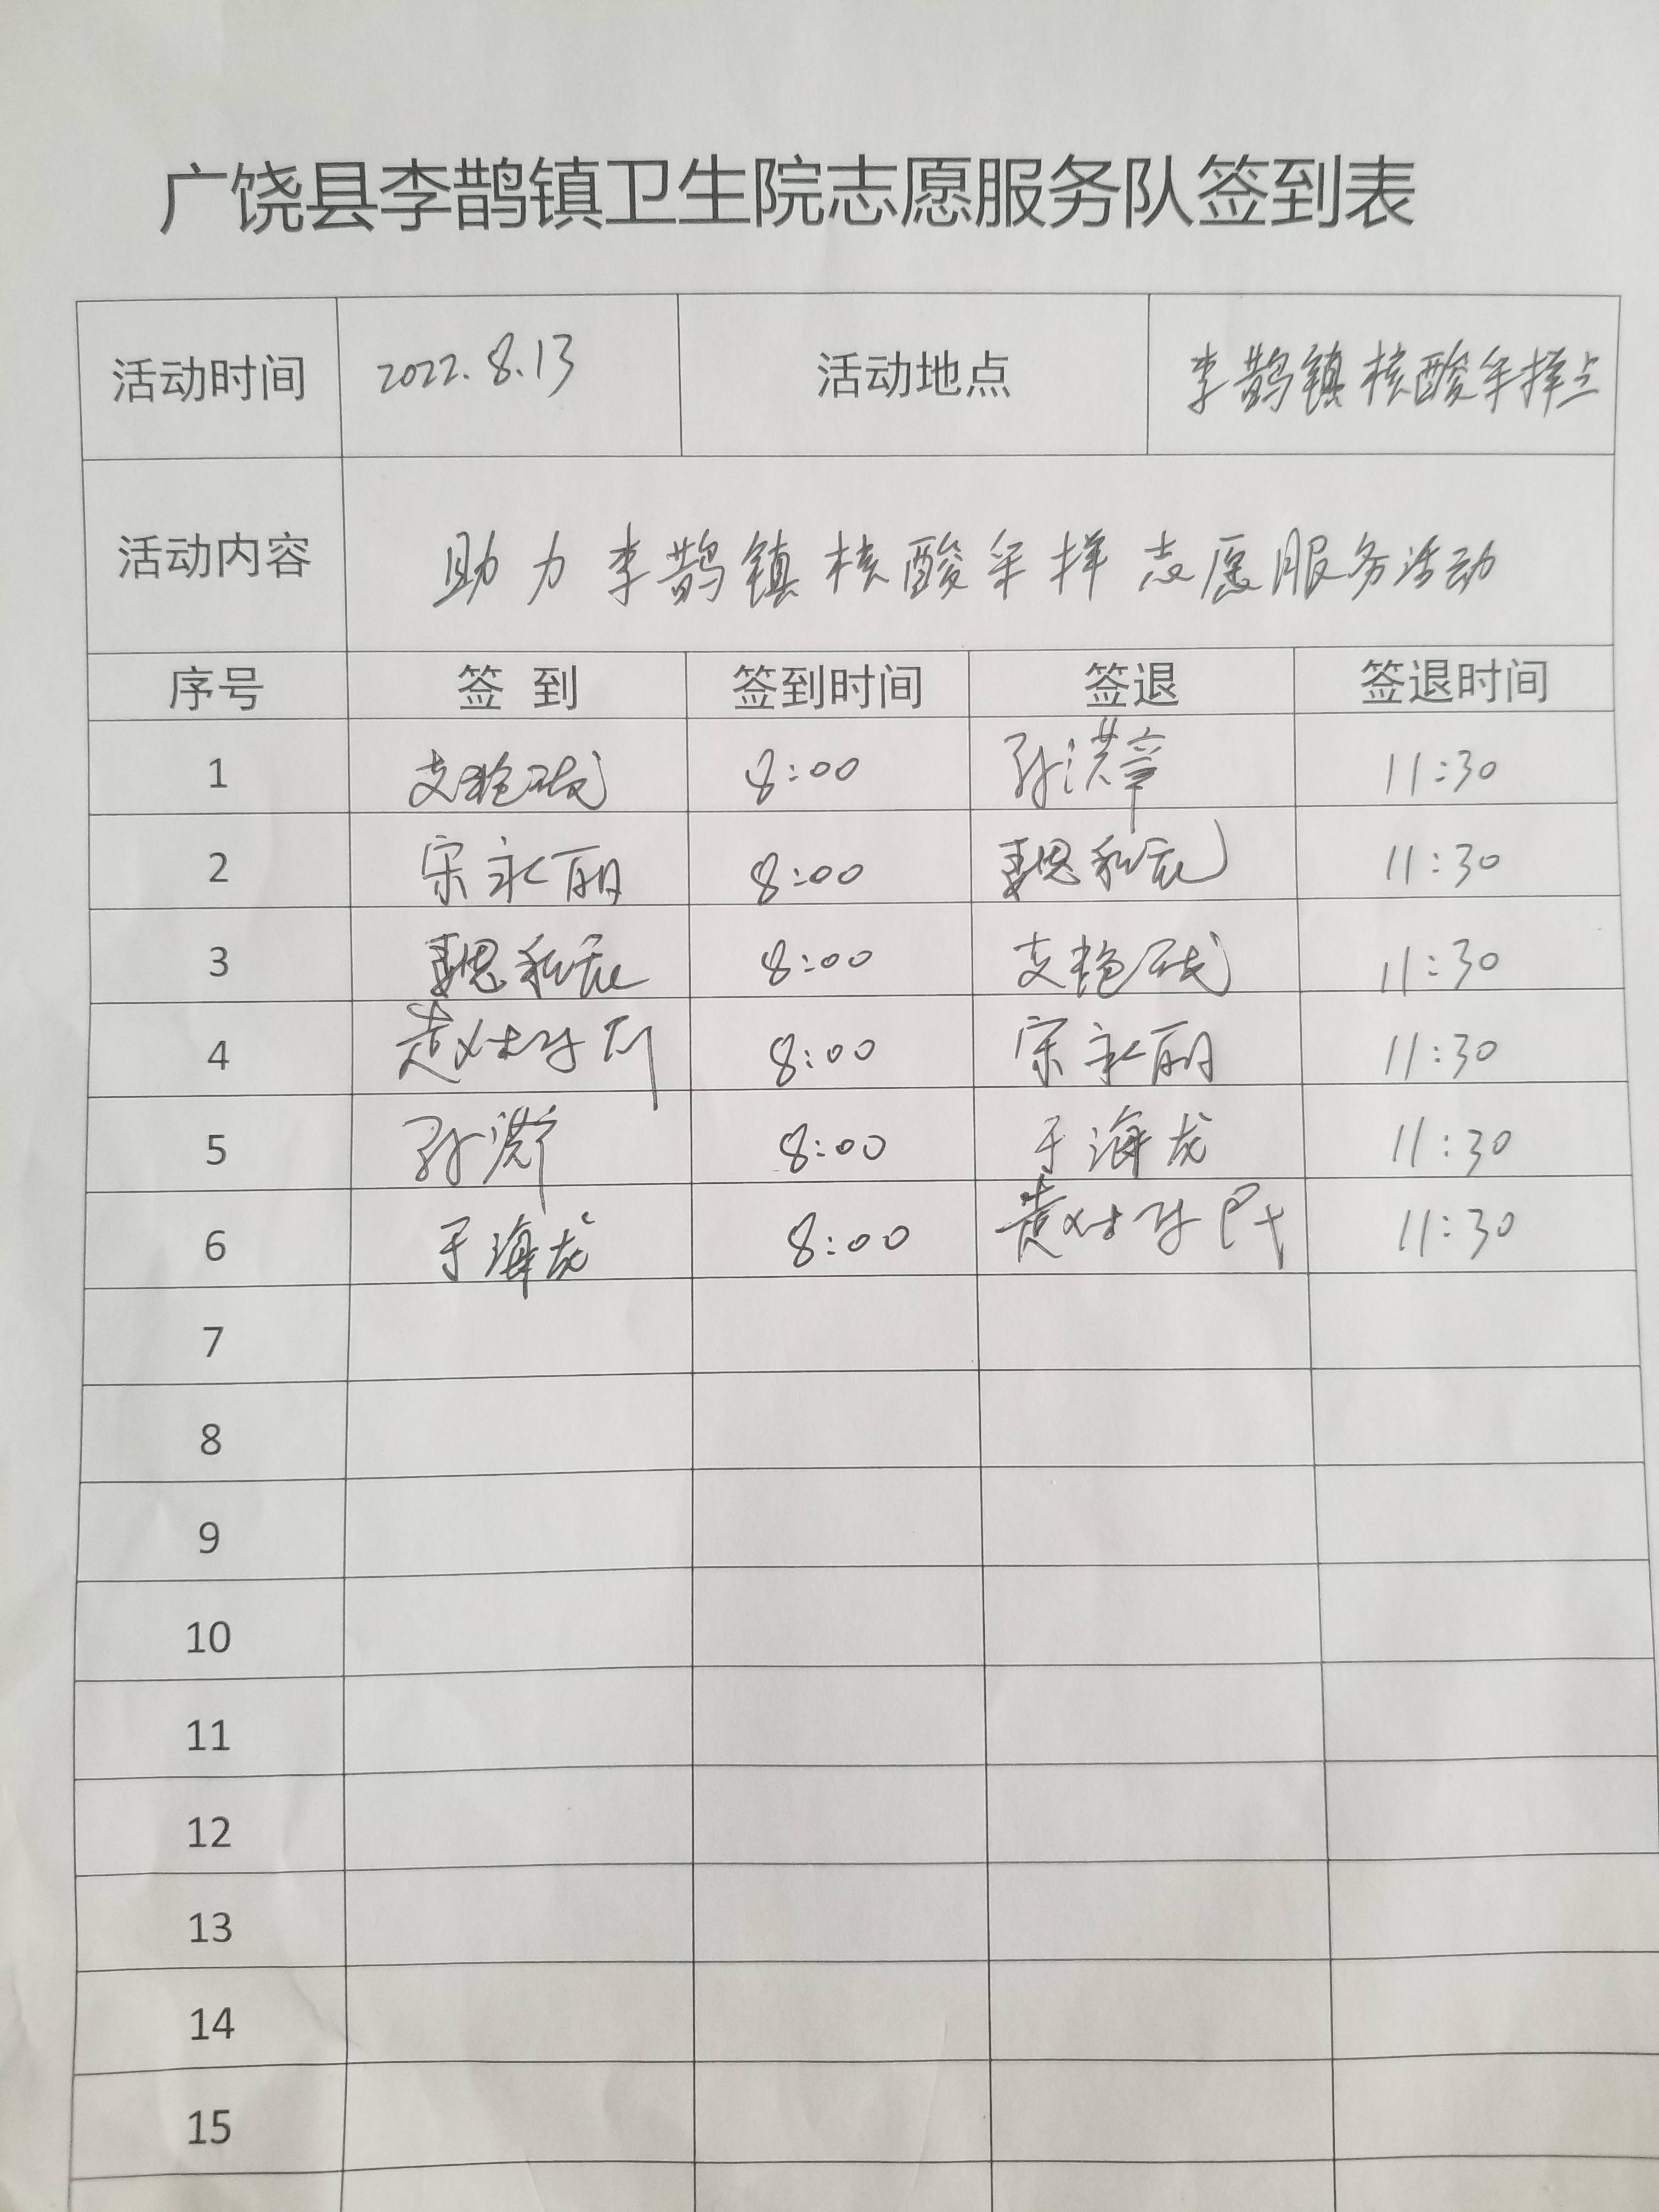 广饶县李鹊镇卫生院志愿服务队签到表
活动时间 2022.8.13 活动地点 李鹊镇核酸采样点
活动内容 助力李鹊镇核酸采样志愿服务活动
序号 签到 签到时间 签退 签退时间
1 8:00 孙洪章 11:30
2 宋永丽 8:00 11:30
3 8:00 11:30
4 8:00 宋永丽 11:30
5 8:00 于海龙 11:30
6 于海龙 8:00 11:30
7
8
9
10
11
12
13
14
15